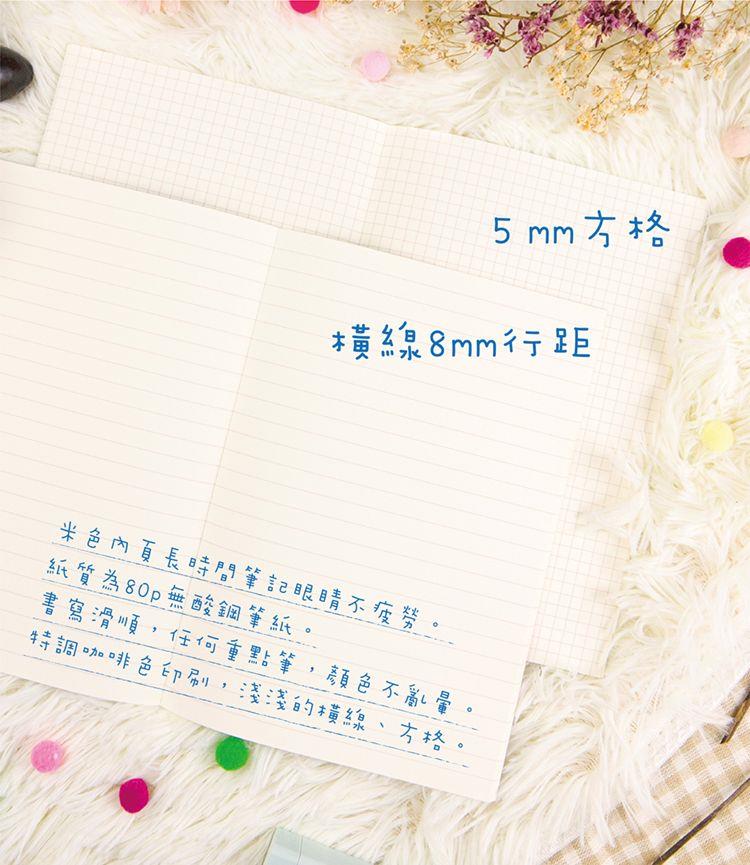 5 mm方格
橫線8mm行距
米色內頁長時間筆記眼睛不疲勞。
紙質為80p無酸鋼筆紙。
書寫滑順，任何重點筆，顏色不亂暈。
特調咖啡色印刷，淺淺的橫線、方格。